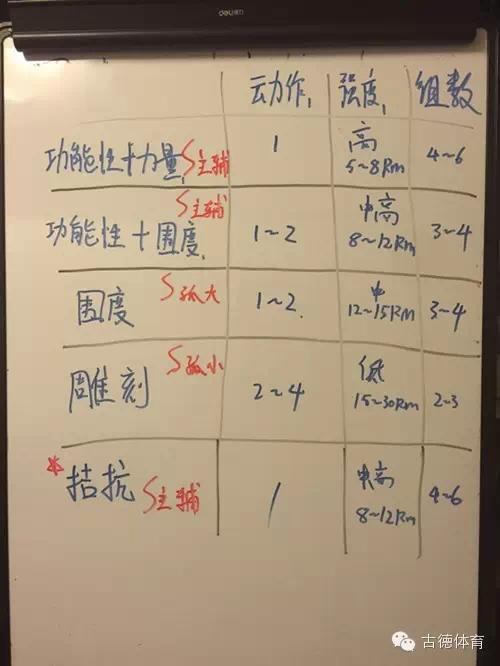 deli
动作 强度 组数
功能性+力量 S主辅 1 高 5~8Rm 4~6
功能性+围度 S主辅 1~2 中高 8~12Rm 3~4
围度 S孤大 1~2 中 12~15Rm 3~4
雕刻 S孤小 2~4 低 15~30Rm 2~3
*拮抗 S主辅 1 中高 8~12Rm 4~6
古德体育